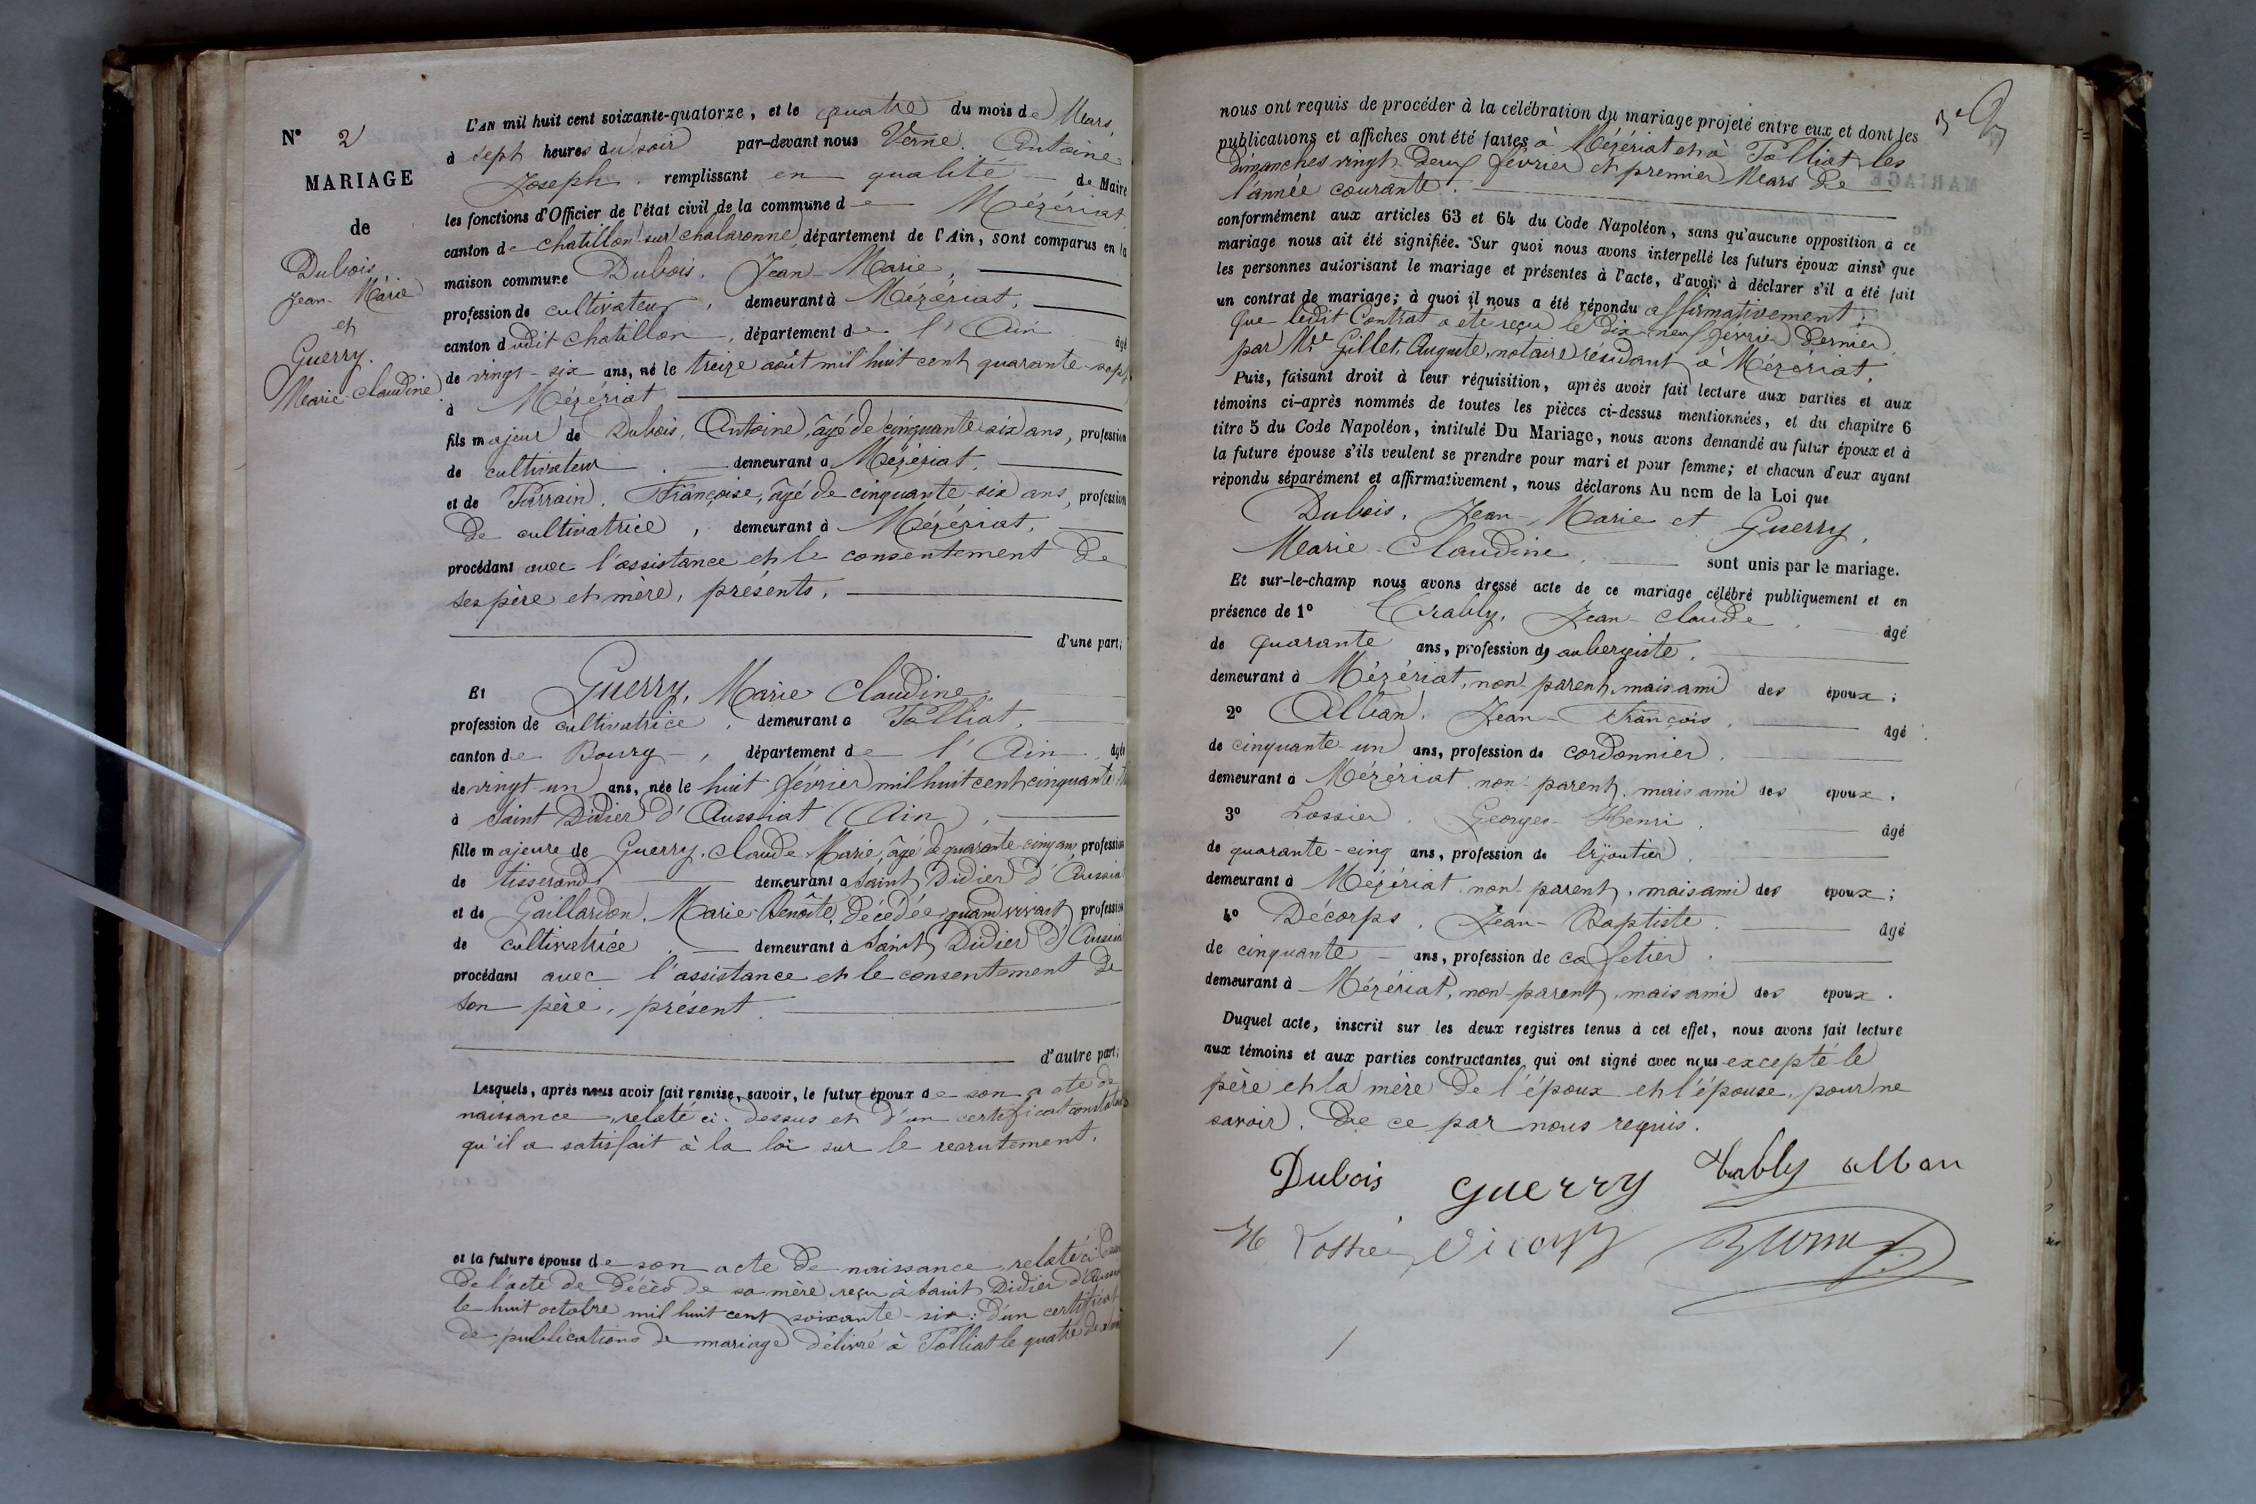 N° 2
MARIAGE
de
Dubois,
Jean-Marie
et
Guerry.
Marie-Claudine.
L'AN mil huit cent soixante-quatorze, et le quatre du mois de Mars,
à sept heures du soir par-devant nous Verne. Antoine
Joseph. remplissant en qualité de Maire
les fonctions d'Officier de l'état civil de la commune de Mézériat
canton de Chatillon sur Chalaronne, département de l'Ain, sont comparus en la
maison commune Dubois. Jean-Marie,
profession de cultivateur, demeurant à Mézériat,
canton dudit Chatillon, département de l'Ain âgé
de vingt-six ans, né le treize août mil huit cent quarante-sept,
à Mézériat
fils majeur de Dubois, Antoine, âgé de cinquante six ans, profession
de cultivateur. demeurant à Mézériat,
et de Françoise, âgé de cinquante-six ans, profession
de cultivatrice, demeurant à Mézériat,
procédant avec l'assistance et le consentement de
ses père et mère, présents,
d'une part;
Et Guerry, Marie Claudine,
profession de cultivatrice, demeurant à Polliat,
canton de Bourg, département de l'Ain, âgée
de vingt-un ans, née le huit février mil huit cent cinquante
à Saint Didier d'Aussiat (Ain),
fille majeure de Guerry, Claude-Marie, âgé de quarante-cinq ans, profession
de tisserand demeurant à Saint Didier d'Aussiat
et de Gaillardon, Marie-Benoîte, décédée, quand vivait, profession
de cultivatrice demeurant à Saint Didier d'Aussiat
procédant avec l'assistance et le consentement de
son père, présent.
d'autre part;
Lesquels, après nous avoir fait remise, savoir, le futur époux de son acte de
naissance, relaté ci-dessus et d'un certificat constatant
qu'il a satisfait à la loi sur le recrutement.
et la future épouse de son acte de naissance, relaté ci-dessus
de l'acte de décès de sa mère, reçu à Saint Didier d'Aussiat
le huit octobre mil huit cent soixante-six: d'un certificat
de publications de mariage délivré à Polliat le quatre de
nous ont requis de procéder à la célébration du mariage projeté entre eux et dont les
publications et affiches ont été faites à Mézériat et à Polliat les
dimanches vingt-deux février et premier Mars de
l'année courante.
conformément aux articles 63 et 64 du Code Napoléon, sans qu'aucune opposition à ce
mariage nous ait été signifiée. Sur quoi nous avons interpellé les futurs époux ainsi que
les personnes autorisant le mariage et présentes à l'acte, d'avoir à déclarer s'il a été fait
un contrat de mariage; à quoi il nous a été répondu affirmativement;
Que ledit Contrat a été reçu le dix-neuf février dernier,
par Me Gillet, Auguste, notaire résidant à Mézériat.
Puis, faisant droit à leur réquisition, après avoir fait lecture aux parties et aux
témoins ci-après nommés de toutes les pièces ci-dessus mentionnées, et du chapitre 6
titre 5 du Code Napoléon, intitulé Du Mariage, nous avons demandé au futur époux et à
la future épouse s'ils veulent se prendre pour mari et pour femme; et chacun d'eux ayant
répondu séparément et affirmativement, nous déclarons Au nom de la Loi que
Dubois, Jean-Marie et Guerry,
Marie-Claudine. sont unis par le mariage.
Et sur-le-champ nous avons dressé acte de ce mariage célébré publiquement et en
présence de 1° Trably, Jean-Claude. âgé
de quarante ans, profession d'aubergiste.
demeurant à Mézériat, non parent, mais ami des époux;
2° Alban, Jean-François. âgé
de cinquante-un ans, profession de cordonnier.
demeurant à Mézériat non parent, mais ami des époux;
3° Lossier. Georges-Henri. âgé
de quarante-cinq ans, profession de bijoutier.
demeurant à Mézériat non-parent, mais ami des époux;
4° Décorps, Jean-Baptiste. âgé
de cinquante ans, profession de cafetier.
demeurant à Mézériat, non-parent, mais ami des époux.
Duquel acte, inscrit sur les deux registres tenus à cet effet, nous avons fait lecture
aux témoins et aux parties contractantes, qui ont signé avec nous excepté le
père et la mère de l'époux et l'épouse, pour ne
savoir. De ce par nous requis.
Dubois Guerry Trably alban